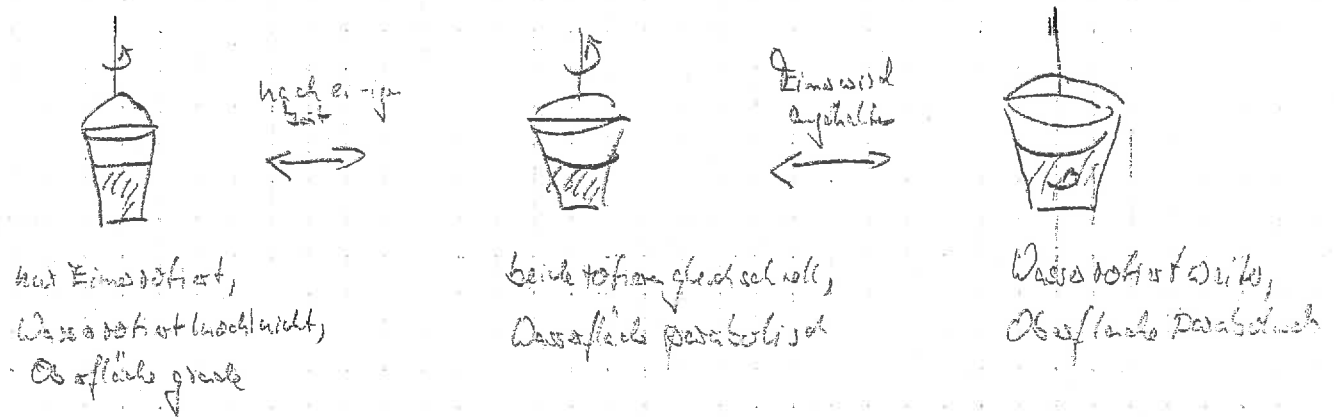 nach einiger
Zeit
Eimer wird
angehalten
nur Eimer rotiert,
Wasser rotiert noch nicht,
Oberfläche gerade
beide rotieren gleich schnell,
Wasserfläche parabolisch
Wasser rotiert weiter,
Oberfläche parabolisch